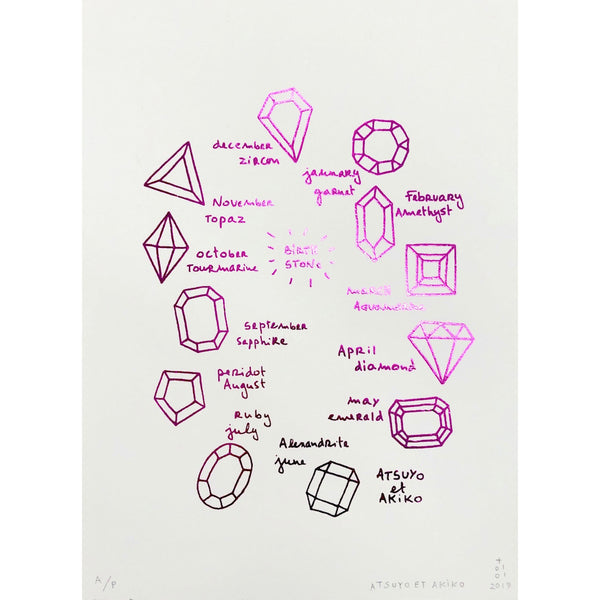 december
zircon
january
garnet
November
Topaz
February
Amethyst
BIRTH
STONE
october
Tourmarine
march
Aquamarine
September
sapphire
April
diamond
peridot
August
may
emerald
Ruby
july
Alexandrite
june
ATSUYO
et
AKiKO
A/P
ATSUYO ET AKIKO
2019